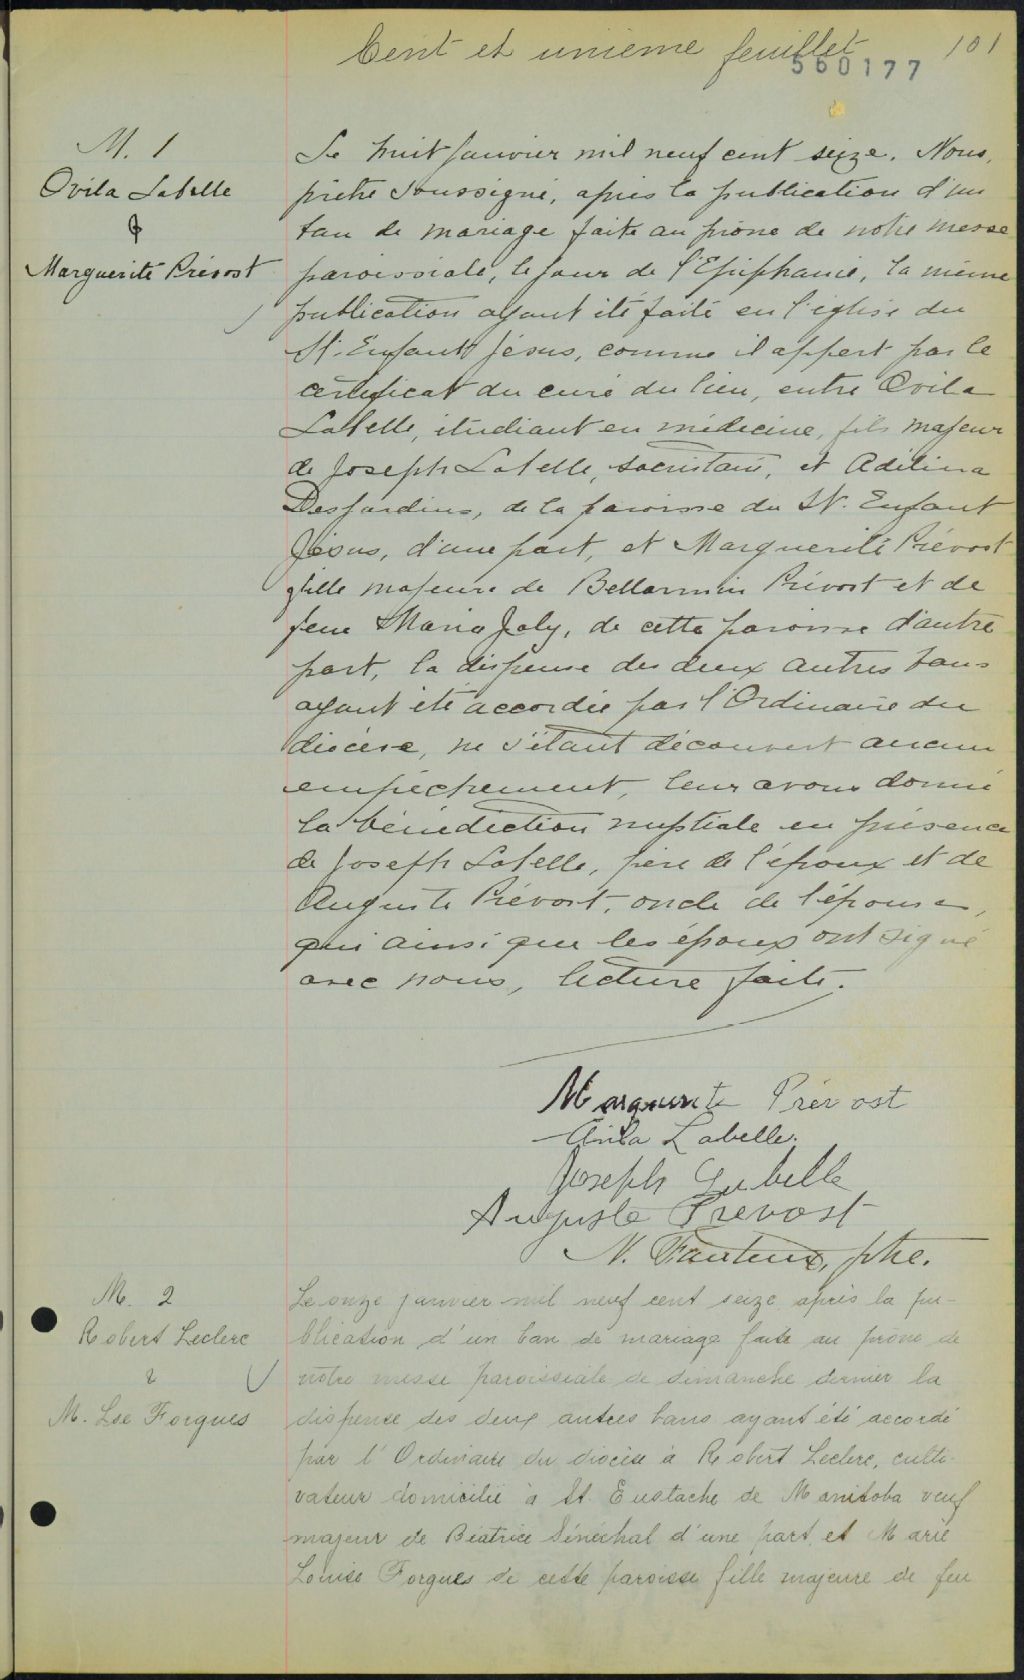 Cent et unième feuillet 101
560177
M. 1
Ovila Labelle
&
Marguerite Prévost
Le huit janvier mil neuf cent seize. Nous,
prêtre soussigné, après la publication d'un
ban de mariage faite au prône de notre messe
paroissiale, le jour de l'Epiphanie, la même
publication ayant été faite en l'église du
St. Enfant Jésus, comme il appert par le
certificat du curé du lieu, entre Ovila
Labelle, étudiant en médecine, fils majeur
de Joseph Labelle, sacristain, et Adélina
Desjardins, de la paroisse du St. Enfant
Jésus, d'une part, et Marguerite Prévost
fille majeure de Bellarmin Prévost et de
feue Maria Joly, de cette paroisse d'autre
part, la dispense des deux autres bans
ayant été accordée par l'Ordinaire du
diocèse, ne s'étant découvert aucun
empêchement, leur avons donné
la bénédiction nuptiale en présence
de Joseph Labelle, père de l'époux et de
Auguste Prévost, oncle de l'épouse,
qui ainsi que les époux ont signé
avec nous, lecture faite.
Marguerite Prévost
Ovila Labelle.
Joseph Labelle
Auguste Prevost
N. Fauteux, ptre.
M. 2
Robert Leclerc
&
M. Lse Forgues
Le onze janvier mil neuf cent seize après la pu-
blication d'un ban de mariage faite au prône de
notre messe paroissiale de dimanche dernier la
dispense des deux autres bans ayant été accordé
par l'Ordinaire du diocèse à Robert Leclerc, culti-
vateur domicilié à St Eustache de Manitoba veuf
majeur de Béatrice Sénéchal d'une part, et Marie
Louise Forgues de cette paroisse fille majeure de feu